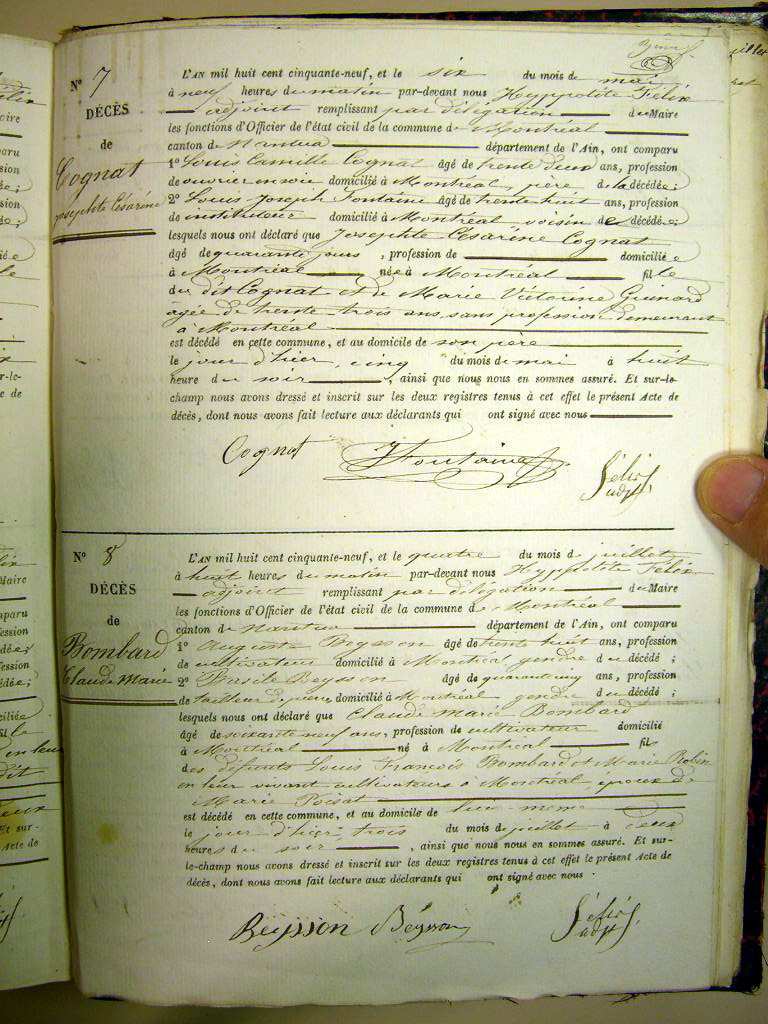 N° 7
DÉCÈS
de
Cognat
Josephte Césarine
L'AN mil huit cent cinquante-neuf, et le six du mois de mai
à neuf heures du matin par-devant nous Hyppolite Félix
adjoint remplissant par délégation du Maire
les fonctions d'Officier de l'état civil de la commune de Montréal
canton de Nantua département de l'Ain, ont comparu
1° Louis Camille Cognat âgé de trente deux ans, profession
de ouvrier en soie domicilié à Montréal, père de la décédée;
2° Louis Joseph Fontaine âgé de trente huit ans, profession
de instituteur domicilié à Montréal voisin de décédée;
lesquels nous ont déclaré que Josephte Césarine Cognat
âgé de quarante jours, profession de domiciliée
à Montréal née à Montréal fille
du dit Cognat et de Marie Victorine Guinard
âgée de trente trois ans, sans profession demeurant
à Montréal
est décédé en cette commune, et au domicile de son père
le jour d'hier, cinq du mois de mai à huit
heure du soir, ainsi que nous nous en sommes assuré. Et sur-le-
champ nous avons dressé et inscrit sur les deux registres tenus à cet effet le présent Acte de
décès, dont nous avons fait lecture aux déclarants qui ont signé avec nous
Cognat Fontaine Félix adjt
N° 8
DÉCÈS
de
Bombard
Claude Marie
L'AN mil huit cent cinquante-neuf, et le quatre du mois de juillet
à huit heures du matin par-devant nous Hyppolite Félix
adjoint remplissant par délégation du Maire
les fonctions d'Officier de l'état civil de la commune de Montréal
canton de Nantua département de l'Ain, ont comparu
1° Auguste Beysson âgé de trente huit ans, profession
de cultivateur domicilié à Montréal gendre du décédé;
2° Basile Beysson âgé de quarante cinq ans, profession
de tailleur de pierre, domicilié à Montréal gendre du décédé;
lesquels nous ont déclaré que Claude Marie Bombard
âgé de soixante neuf ans, profession de cultivateur domicilié
à Montréal né à Montréal fils
des défunts Louis François Bombard et Marie Robin
en leur vivant cultivateurs à Montréal époux de
Marie Poisat
est décédé en cette commune, et au domicile de lui-même
le jour d'hier trois du mois de juillet à deux
heures du soir, ainsi que nous nous en sommes assuré. Et sur-
le-champ nous avons dressé et inscrit sur les deux registres tenus à cet effet le présent Acte de
décès, dont nous avons fait lecture aux déclarants qui ont signé avec nous.
Beysson Beysson Félix adjt